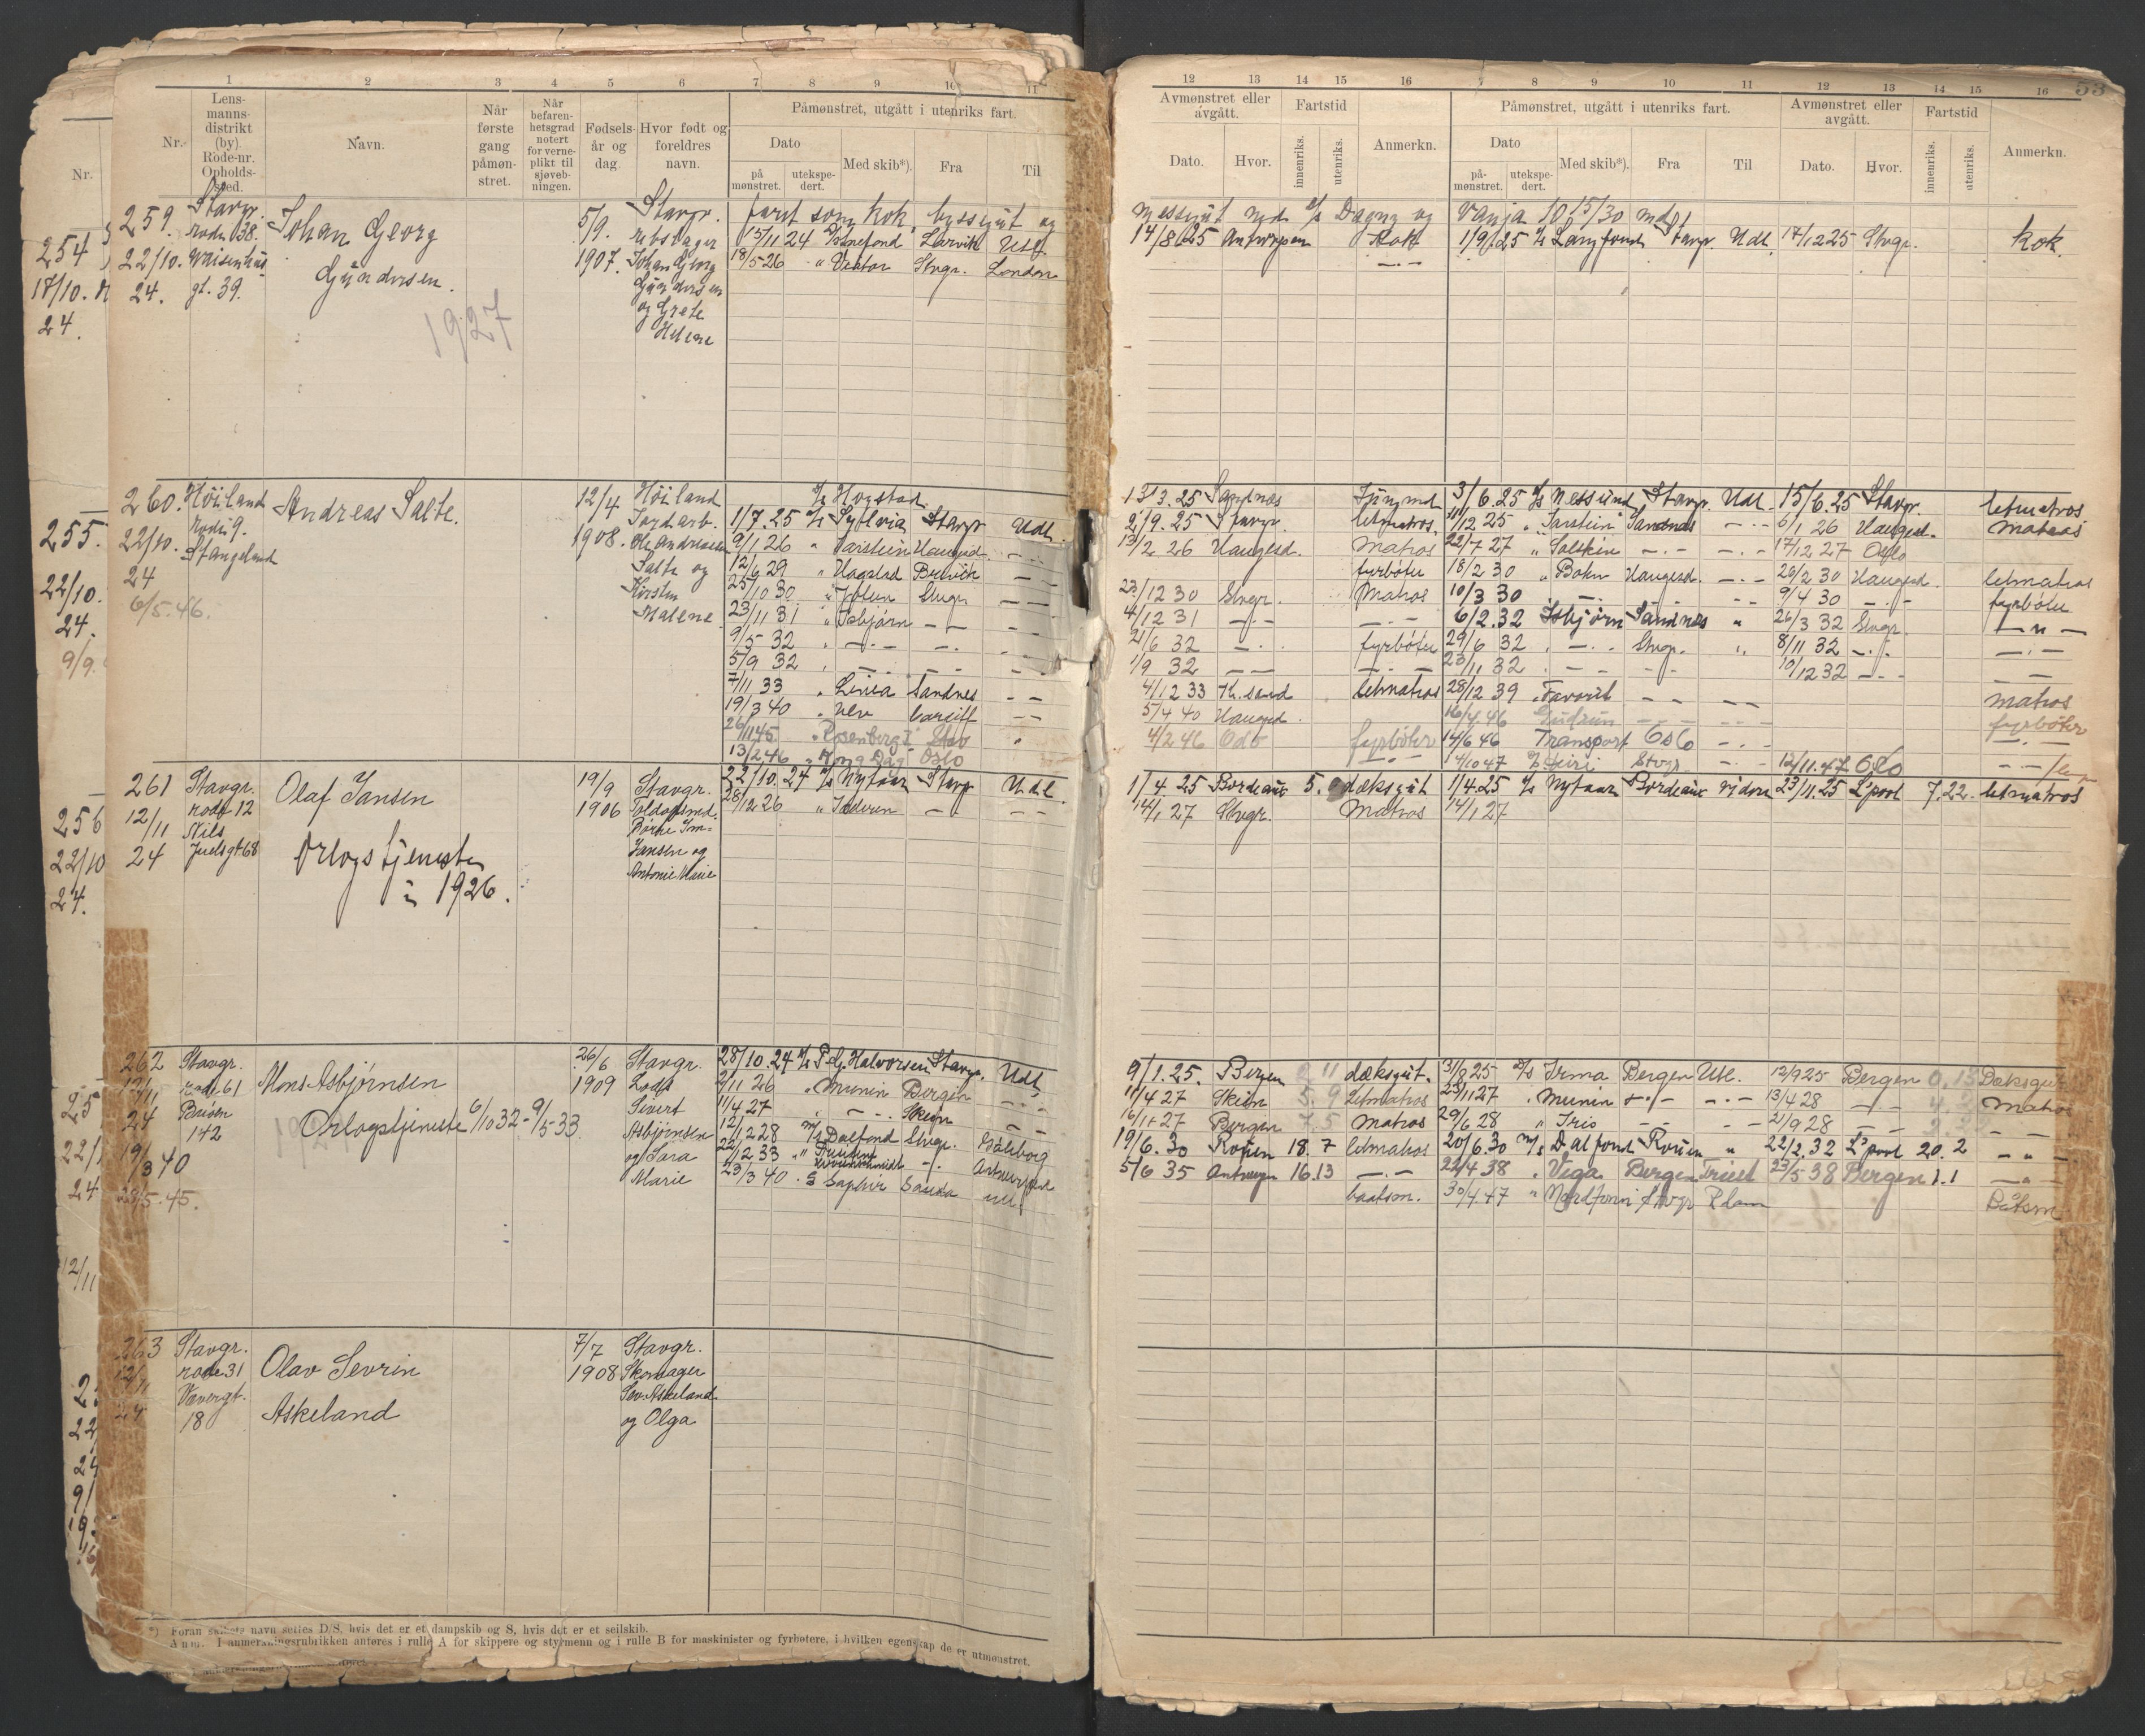 1 2 3 4 5 6 7 8 9 10 11
Nr. Lens- manns- distrikt (by). Rode-nr. Opholds- sted. Navn. Når første gang påmøn- stret. Når befaren- hetsgrad notert for verne- plikt til sjøveb- ningen. Fødsels- år og dag. Hvor født og foreldres navn. Påmønstret, utgått i utenriks fart.
Dato Med skib*). Fra Til
på mønstret. utekspe- dert.
Nr.
259. Stavgr. Johan Georg 5/9. Stavgr. faret som kok, byssegut og
rode 38. Rebslager 15/11 24 Larvik Utl.
22/10. Waisenhus Gündersen. 1907. Johan Georg 18/5-26 " Vestor Stvgr. London
24. gt. 39. Gündersen
1927 og Grete
Helene
260. Höiland Andreas Salte. 12/4 Höiland D/S Hogstad
rode 9. Jordarb. 1/7.25 D/S Sylvia Stavgr Udl.
22/10. Stangeland 1908. Ole Andreassen 9/1 26 " Jarstein Haugesd. — " —
24 Salte og 12/6 29 " Hogstad Brevik — —
6/5.46. Kirsten 25/10 30 Stvgr. — —
Malene 23/11 31 " Isbjørn — — — —
9/5 32 " — . — — .
5/9 32
7/11 33 " Linea Sandnes — —
19/3 40 " Ulv Cardiff — —
26/11 45 " Rosenberg I Stav "
13/2 46 " Kong Dag Oslo
261 Stavgr. Olaf Jansen 19/9 Stavgr. 22/10.24 D/S Nytaar Stavgr Udl.
12/11 rode 12 1906 28/12 26 " Jæderen — — —
Nils
24 Juelsgt 68 Orlogstjeneste Jansen og
i 1926. Antonie Marie
262 Stavgr. Mons Asbjørnsen 26/6 Stavgr. 28/10.24 D/S P.G. Halvorsen Stavgr. Udl.
12/11 rode 61 1909 Lods 2/11 26 " Munin Bergen — " —
24 142 Orlogstjeneste 6/10 32 - 9/5 33 Sivert 11/4 27 " — . — Skien — —
19/3 40 Asbjørnsen 12/1 28 M/S Dalfond Stvgr. Gøteborg
28/5.45. og Sara 22/12 33 — . — Antwerpen
Marie 23/3 40 . S Saphir
263 Stavgr. Olav Sevrin 7/7 Stavgr.
12/11 rode 31 1908 Skomager
24 Vævergt. Askeland Sev. Askeland
18 og Olga
*) Foran skibets navn settes D/S, hvis det er et dampskib og S, hvis det er et seilskib.
Anm. I anmerkningsrubrikken anføres i rulle A for skippere og styrmenn og i rulle B for maskinister og fyrbøtere, i hvilken egenskap de er utmønstret.
254
17/10.
24.
255.
22/10.
24.
9/9.
256
22/10
24.
53
12 13 14 15 16 7 8 9 10 11 12 13 14 15 16
Avmønstret eller avgått. Fartstid Anmerkn. Påmønstret, utgått i utenriks fart. Avmønstret eller avgått. Fartstid Anmerkn.
Dato. Hvor. innenriks. utenriks. Dato Med skib*). Fra Til Dato. Hvor. innenriks. utenriks.
på- mønstret. utekspe- dert.
messegut med D/S Dagny og Vanja 10 15/30 md
14/8.25 Antwerpen Kok 1/9.25 D/S Langfond Stavgr. Udl. 17/12 25 Stvgr. kok.
— . —
13/3.25 Sandnes Jungmd 3/6.25 D/S Nessund Stavgr. Udl. 15/6.25 Stavgr. letmatros
2/9.25 Stavgr. letmatros. 11/12 25 " Jarstein Sandnes — . — 6/1 26 Haugesd. Matros
13/2 26 Haugesd. Matros 22/7 27 " Solskin — . — — . — 17/12 27 Oslo
fyrbøter 18/2 30 " Bokn Haugesd. — . — 26/2 30 Haugesd. letmatros
23/12 30 Stvgr. Matros 10/3 30 — . — 9/4 30 — . — fyrbøter
4/12 31 — . — — . — 6/2.32 Isbjørn Sandnes " 26/3 32 Stvgr. — " —
21/6 32 — . . fyrbøter 29/6 32 . — . . Stvgr. " 8/11 32 — . — — . —
1/9 32 — — — . — 23/11 32 . — — 10/12 32 — . —
4/12 33 Kr.sand letmatros 28/12 39 . Favorit — — — — Matros
5/4 40 Haugesd. 16/4.46 Gudrun — — — — fyrbøter
4/2 46 Oslo fyrbøter 14/6 46 Transport Oslo — . — — . —
— . — 14/10 47 D/S Siri Stvgr — . — 12/11.47 Oslo
1/4.25 Bordeaux 5. dæksgut 1/4.25 D/S Nytaar Bordeaux videre 23/11.25 L'pool 7.22. letmatros
14/1 27 Stvgr. Matros 14/1 27
9/1.25. Bergen 11 dæksgut. 31/8 25 D/S Irma Bergen Utl. 12/9 25 Bergen 0.13 Dæksgut
11/4 27 Skien 5.9 letmatros 23/11 27 . Munin — . — — . — 13/4 28 — — Matros
16/11 27 Bergen 7.5 Matros 29/6 28 " Iris — — — . — 21/9 28 — — — —
19/6.30 Rouen 18.7 letmatros 20/6.30 M/S Dalfond Rouen " 22/2.32 L'pool 20.2 — " —
5/6 35 Antwerpen 16.13 — . — 22/4.38 . Vega Bergen Triest 23/5 38 Bergen 1.1 — " —
baatsm. 30/4.47 " Nordfonn Stvgr Båtsm